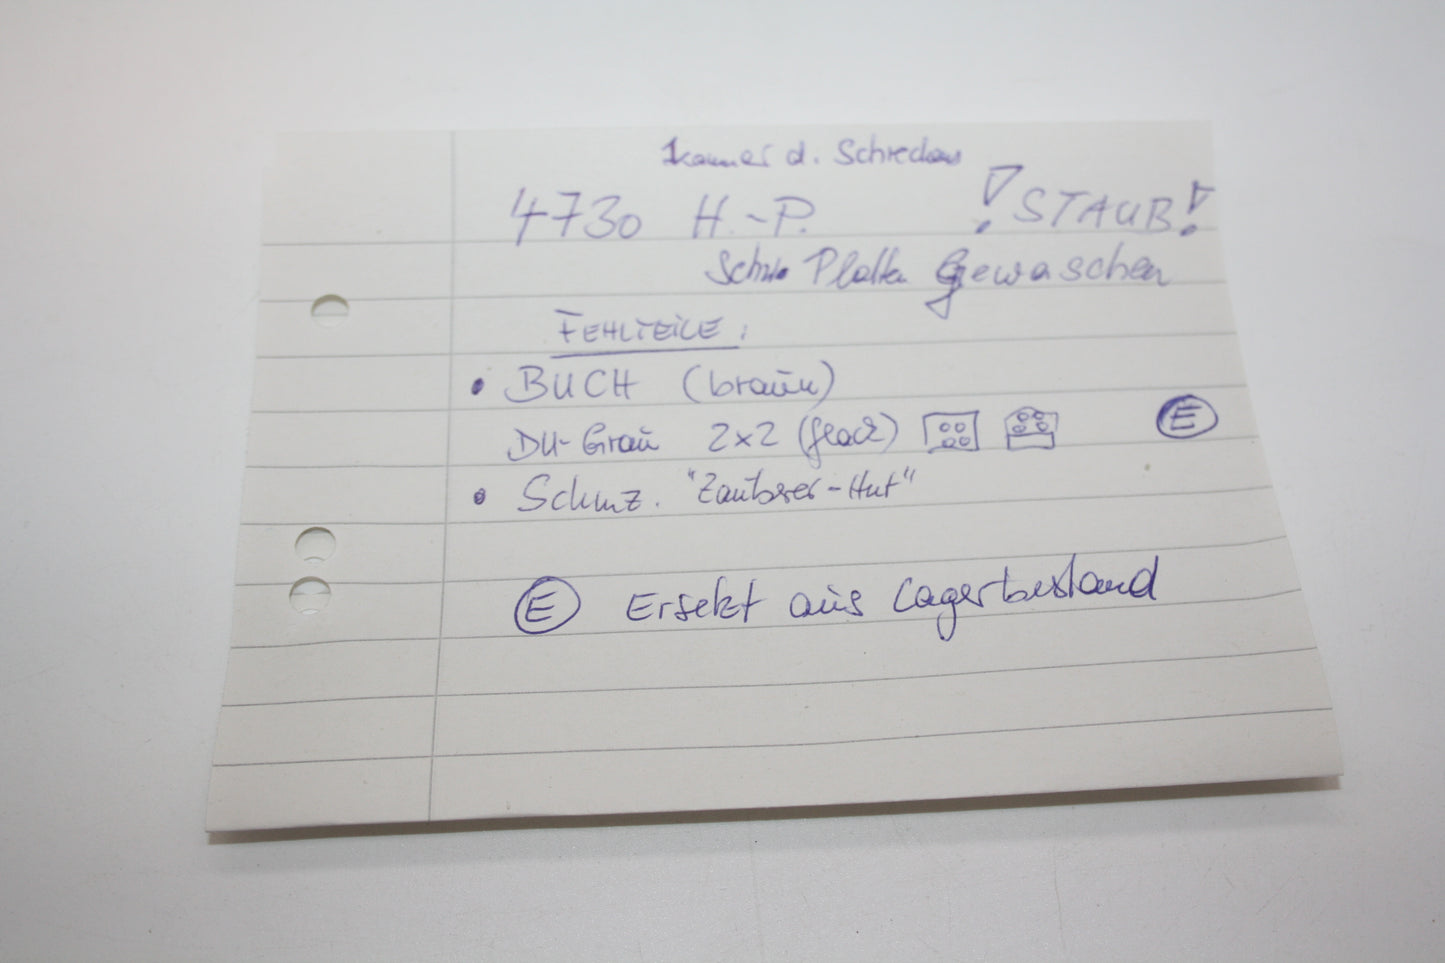 Kammer d. Schreckens
4730 H.-P. ! STAUB!
Platten Gewaschen
FEHLTEILE:
• BUCH (braun)
DU-Grau 2x2 (flach) E
• Schmz. "Zauberer-Hut"
E Ersetzt aus Lagerbestand